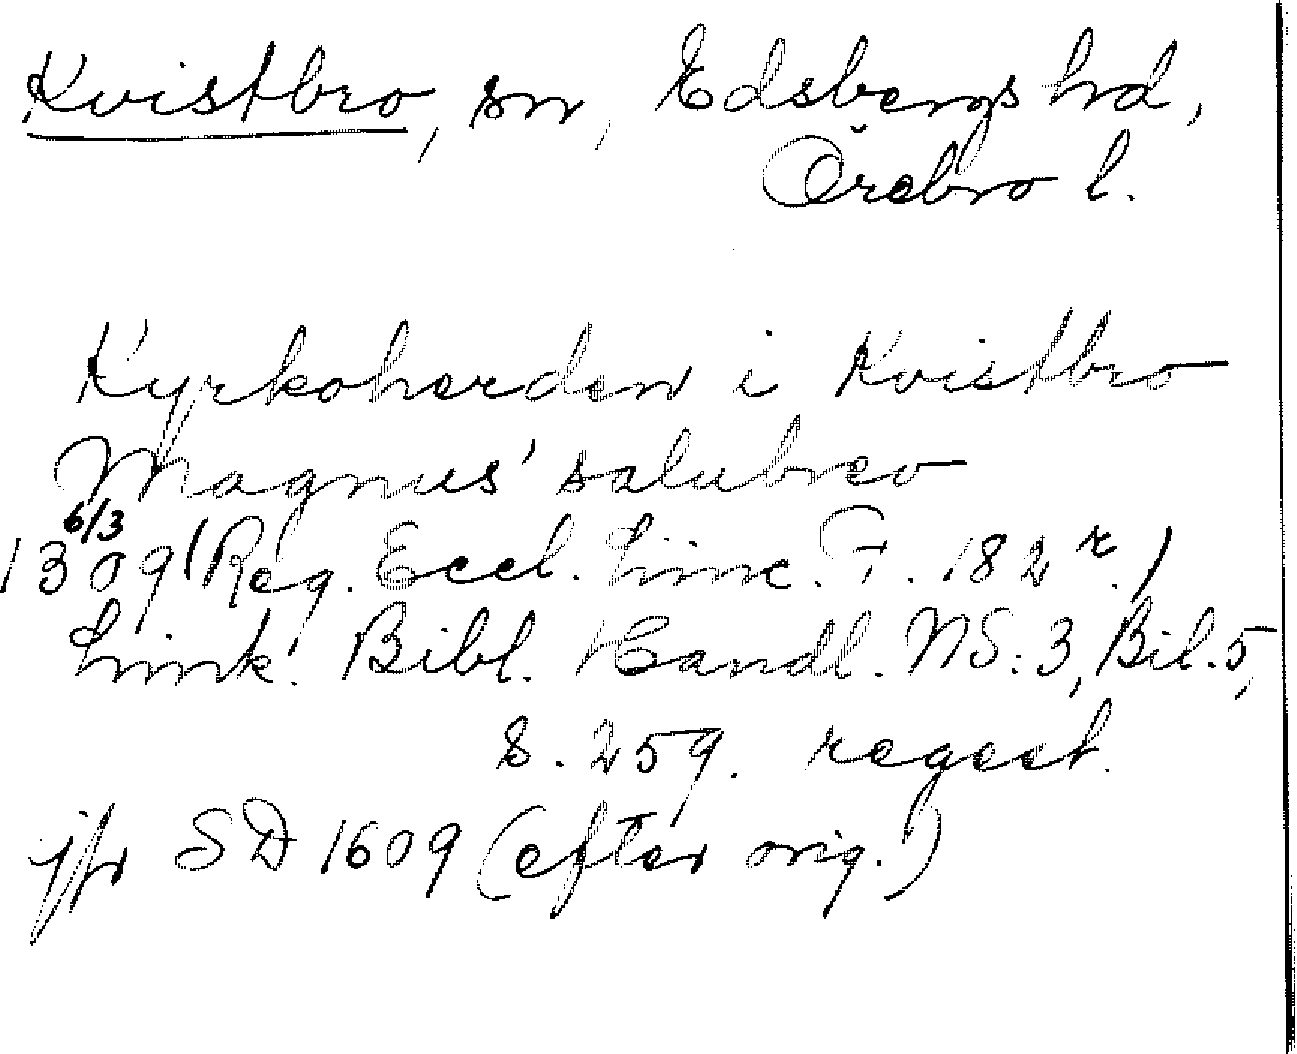 Kvistbro, sn, Edsbergs hrd,
Örebro l.
Kyrkoherden i Kvistbro
Magnus' salubrev
6/3
1309 (Reg. Eccl. Linc. F. 182 r.)
Link. Bibl. Handl. NS: 3, Bil. 5,
s. 259. regest.
jfr SD 1609 (efter orig.)